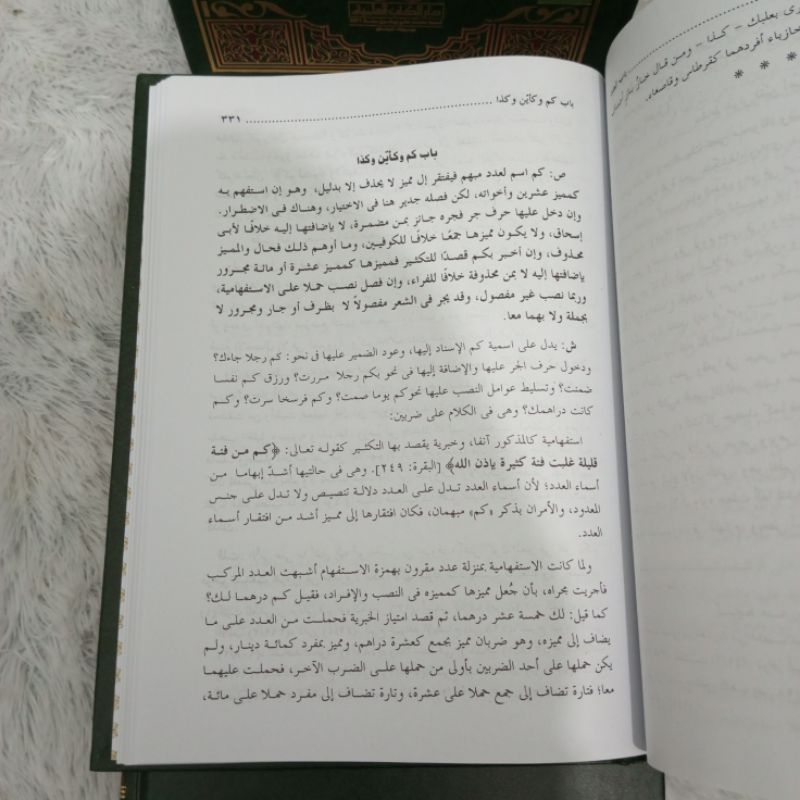 باب كم وكأين وكذا ........................................................ ٣٣١
باب كم وكأين وكذا
ص: كم اسم لعدد مبهم فيفتقر إلى مميز لا يحذف إلا بدليل، وهو إن استفهم به
كمميز عشرين وأخواته، لكن فصله جدير هنا فى الاختيار، وهناك فى الاضطرار.
وإن دخل عليها حرف جر فجره جائز بمن مضمرة، لا بإضافتها إليه خلافًا لأبى
إسحاق، ولا يكون مميزها جمعًا خلافًا للكوفيين، وما أوهم ذلك فحال والمميز
محذوف، وإن أخبر بكم قصدًا للتكثير فمميزها كمميز عشرة أو مائة مجرور
بإضافتها إليه لا بمن محذوفة خلافًا للفراء، وإن فصل نصب حملا على الاستفهامية،
وربما نصب غير مفصول، وقد يجر فى الشعر مفصولاً لا بظرف أو جار ومجرور لا
بجملة ولا بهما معا.
ش: يدل على اسمية كم الإسناد إليها، وعود الضمير عليها فى نحو: كم رجلا جاءك؟
ودخول حرف الجر عليها والإضافة إليها فى نحو بكم رجلا مررت؟ ورزق كم نفسا
ضمنت؟ وتسليط عوامل النصب عليها نحوكم يوما صمت؟ وكم فرسخا سرت؟ وكم
كانت دراهمك؟ وهى فى الكلام على ضربين:
استفهامية كالمذكور آنفا، وخبرية يقصد بها التكثير كقوله تعالى: ﴿كم من فئة
قليلة غلبت فئة كثيرة بإذن الله﴾ [البقرة: ٢٤٩]. وهى فى حالتيها أشدّ إبهاما من
أسماء العدد؛ لأن أسماء العدد تدل على العدد دلالة تنصيص ولا تدل على جنس
المعدود، والأمران بذكر «كم» مبهمان، فكان افتقارها إلى مميز أشد من افتقار أسماء
العدد.
ولما كانت الاستفهامية بمنزلة عدد مقرون بهمزة الاستفهام أشبهت العدد المركب
فأجريت مجراه، بأن جُعل مميزها كمميزه فى النصب والإفراد، فقيل كم درهما لك؟
كما قيل: لك خمسة عشر درهما، ثم قصد امتياز الخبرية فحملت من العدد على ما
يضاف إلى مميزه، وهو ضربان مميز بجمع كعشرة دراهم، ومميز بمفرد كمائة دينار، ولم
يكن حملها على أحد الضربين بأولى من حملها على الضرب الآخر، فحملت عليهما
معا؛ فتارة تضاف إلى جمع حملا على عشرة، وتارة تضاف إلى مفرد حملا على مائة،
بعلبك - كذا - ومن قال
أفردهما كقرطاس وقاصعاء.
* * *